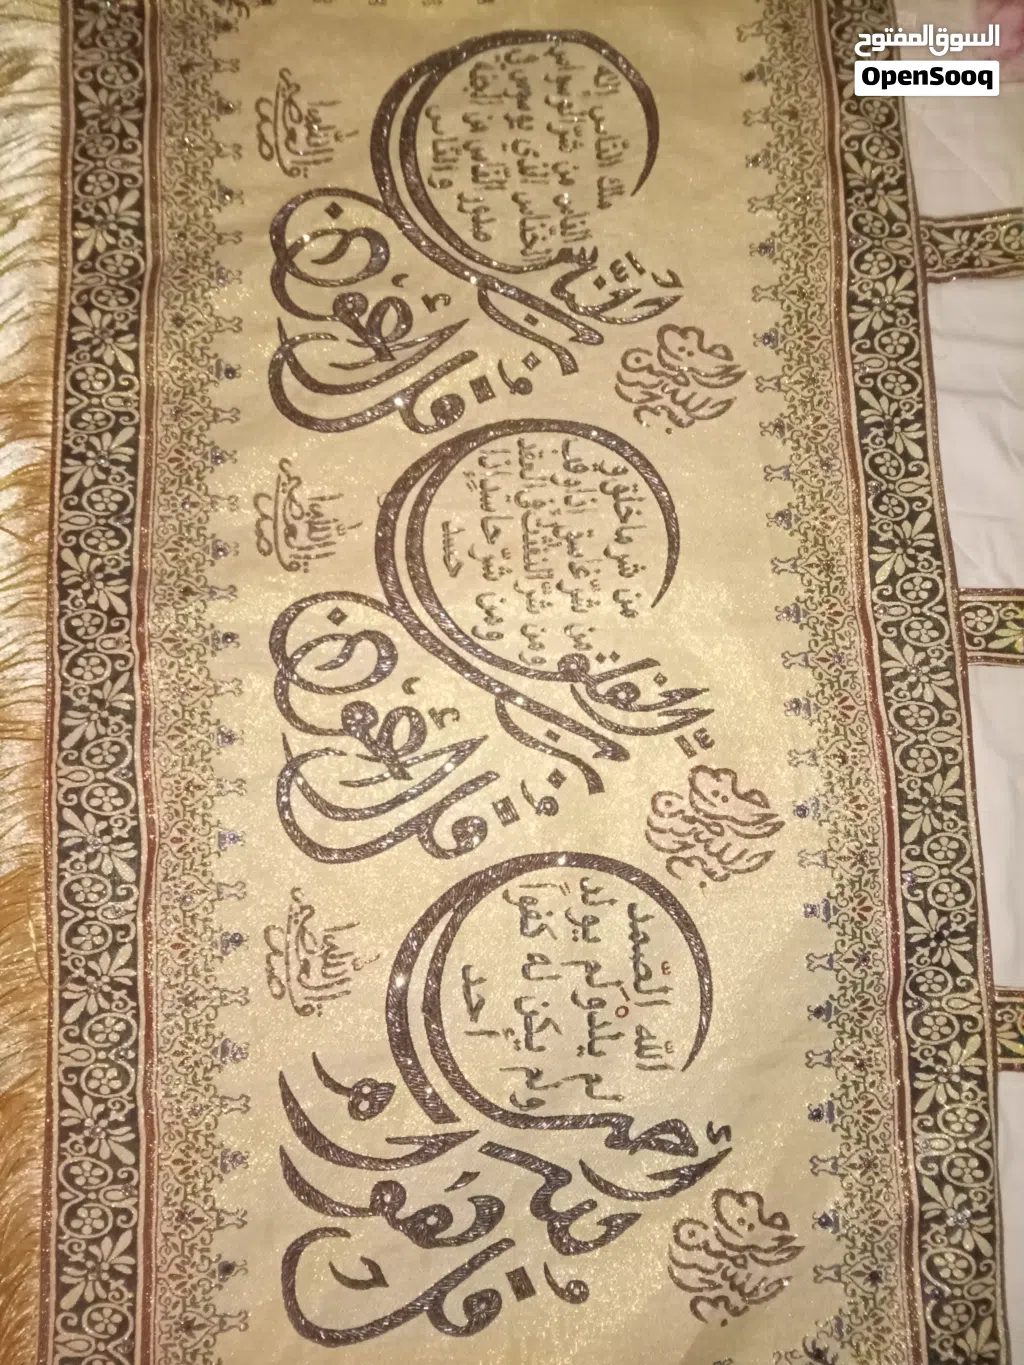 السوق المفتوح
OpenSooq
بسم الله الرحمن الرحيم
قل هو الله أحد
الله الصمد
لم يلد ولم يولد
ولم يكن له كفواً
أحد
صدق الله العظيم
بسم الله الرحمن الرحيم
قل أعوذ برب الفلق
من شر ما خلق و
من شرّ غاسق إذا وقب
ومن شرّ النفّٰثٰت في العقد
ومن شرّ حاسد إذا
حسد
صدق الله العظيم
بسم الله الرحمن الرحيم
قل أعوذ برب الناس
ملك الناس إله
الناس من شرّ الوسواس
الخنّاس الذي يوسوس في
صدور الناس من الجنّة
والنّاس
صدق الله العظيم